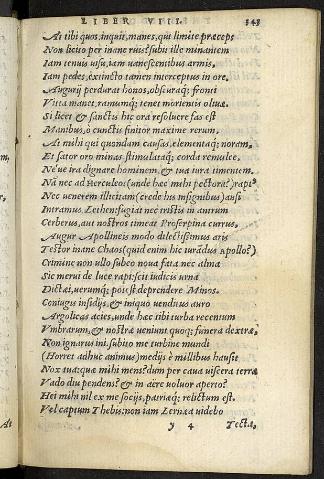 LIBER VIII. 343
At tibi quos, inquit, manes, qui limite præceps
Non licito per inane ruis? subit ille minantem
Iam tenuis uisu, iam uanescentibus armis,
Iam pedes, extincto tamen interceptus in ore.
Augurij perdurat honos, obscuraq; fronti
Vitta manet, ramumq; tenet morientis oliuæ.
Si licet & sanctis hic ora resoluere fas est
Manibus, ò cunctis finitor maxime rerum,
At mihi qui quondam causas, elementaq; noram,
Et sator oro minas stimulataq; corda remulce.
Ne'ue ira dignare hominem, & tua iura timentem.
Nã nec ad Herculeos (unde hæc mihi pectora?) raptꝰ
Nec uenerem illicitam (crede his insignibus) ausi
Intramus Lethen: fugiat nec tristis in antrum
Cerberus, aut nostros timeat Proserpina currus,
Augur Apollineis modo dilectissimus aris
Testor inane Chaos (quid enim hic iurãdus Apollo?)
Crimine non ullo subeo noua fata nec alma
Sic merui de luce rapi: scit iudicis urna
Dictæi, uerumq; potest deprendere Minos.
Coniugis insidijs, & iniquo uenditus auro
Argolicas acies, unde hæc tibi turba recentum
Vmbrarum, & nostræ ueniunt quoq; funera dextræ,
Non ignarus ini. subito me turbine mundi
(Horret adhuc animus) medijs è millibus hausit
Nox tua: quæ mihi mens? dum per caua uiscera terræ
Vado diu pendens? & in aëre uoluor aperto?
Hei mihi nil ex me socijs, patriæq; relictum est.
Vel captum Thebis: non iam Lernæa uidebo
y 4 Tecta,
At